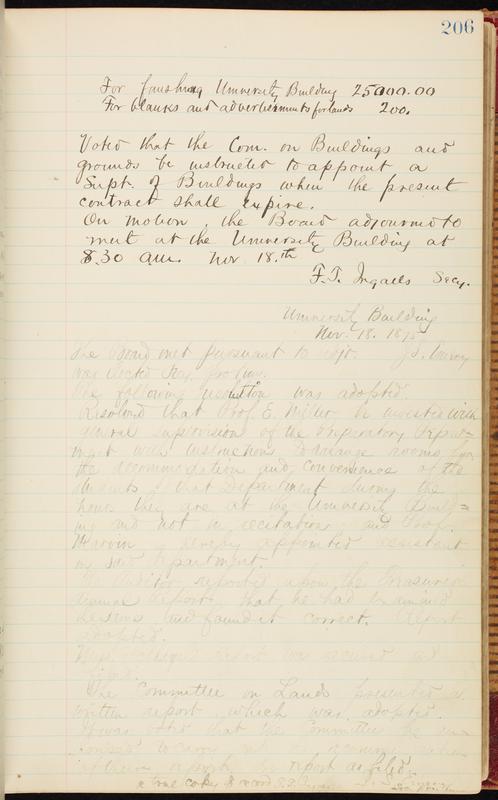 206
For finishing University Building 25000.00
For blanks and advertisements for lands 200.
Voted that the Com. on Buildings and
grounds be instructed to appoint a
Supt. of Buildings when the present
contract shall expire.
On motion, the Board adjourned to
meet at the University Building at
8.30 a.m. Nov 18.th
F.T. Ingalls Secy.
University Building
Nov. 18. 1875
The Board met pursuant to adjt.
was elected Secy pro tem.
The following resolution was adopted.
Resolved that Prof. E. Miller be invested with
general supervision of the Preparatory Depart=
ment with instructions to arrange rooms for
the accommodation and convenience of the
students of that Department during the
hours they are at the University Build=
ing and not in recitation, and Prof.
Marvin is hereby appointed assistant
in said department.
The Auditor reported upon the Treasurer's
annual report, that he had examined
and found it correct. Report
adopted.
report was received and
filed.
The Committee on Lands presented a
written report, which was adopted.
It was voted that the Committee be
to carry out
report as filed.
a true copy